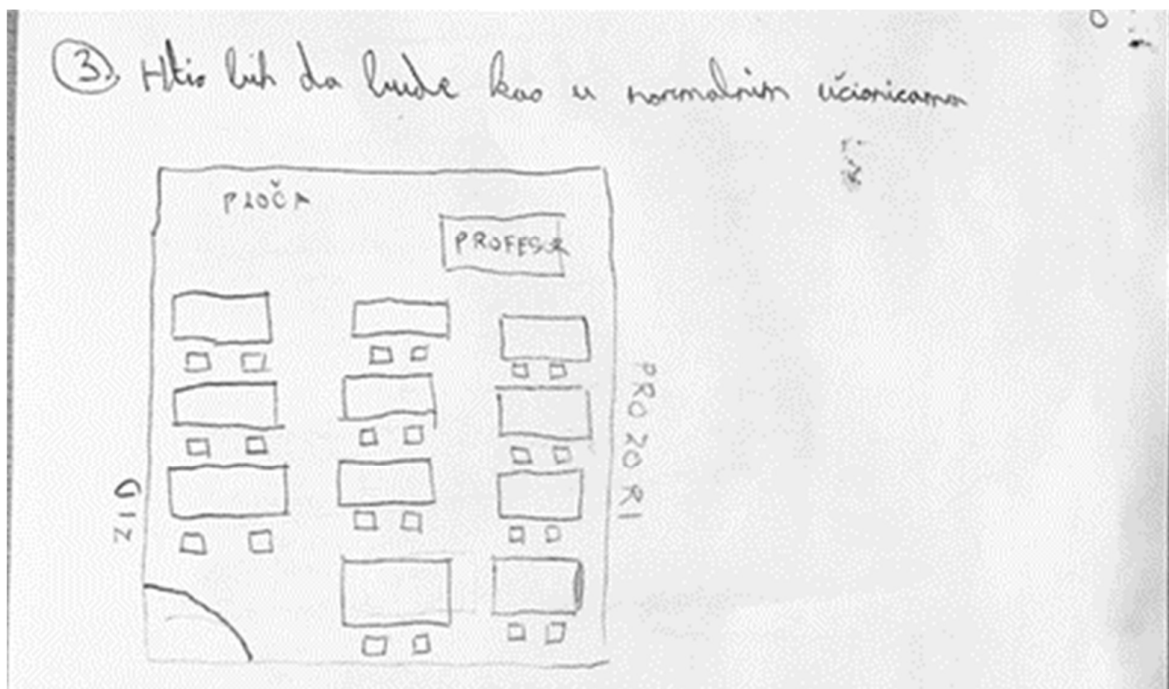 3. Htio bih da bude kao u normalnim učionicama
PLOČA
PROFESOR
PROZORI
ZID